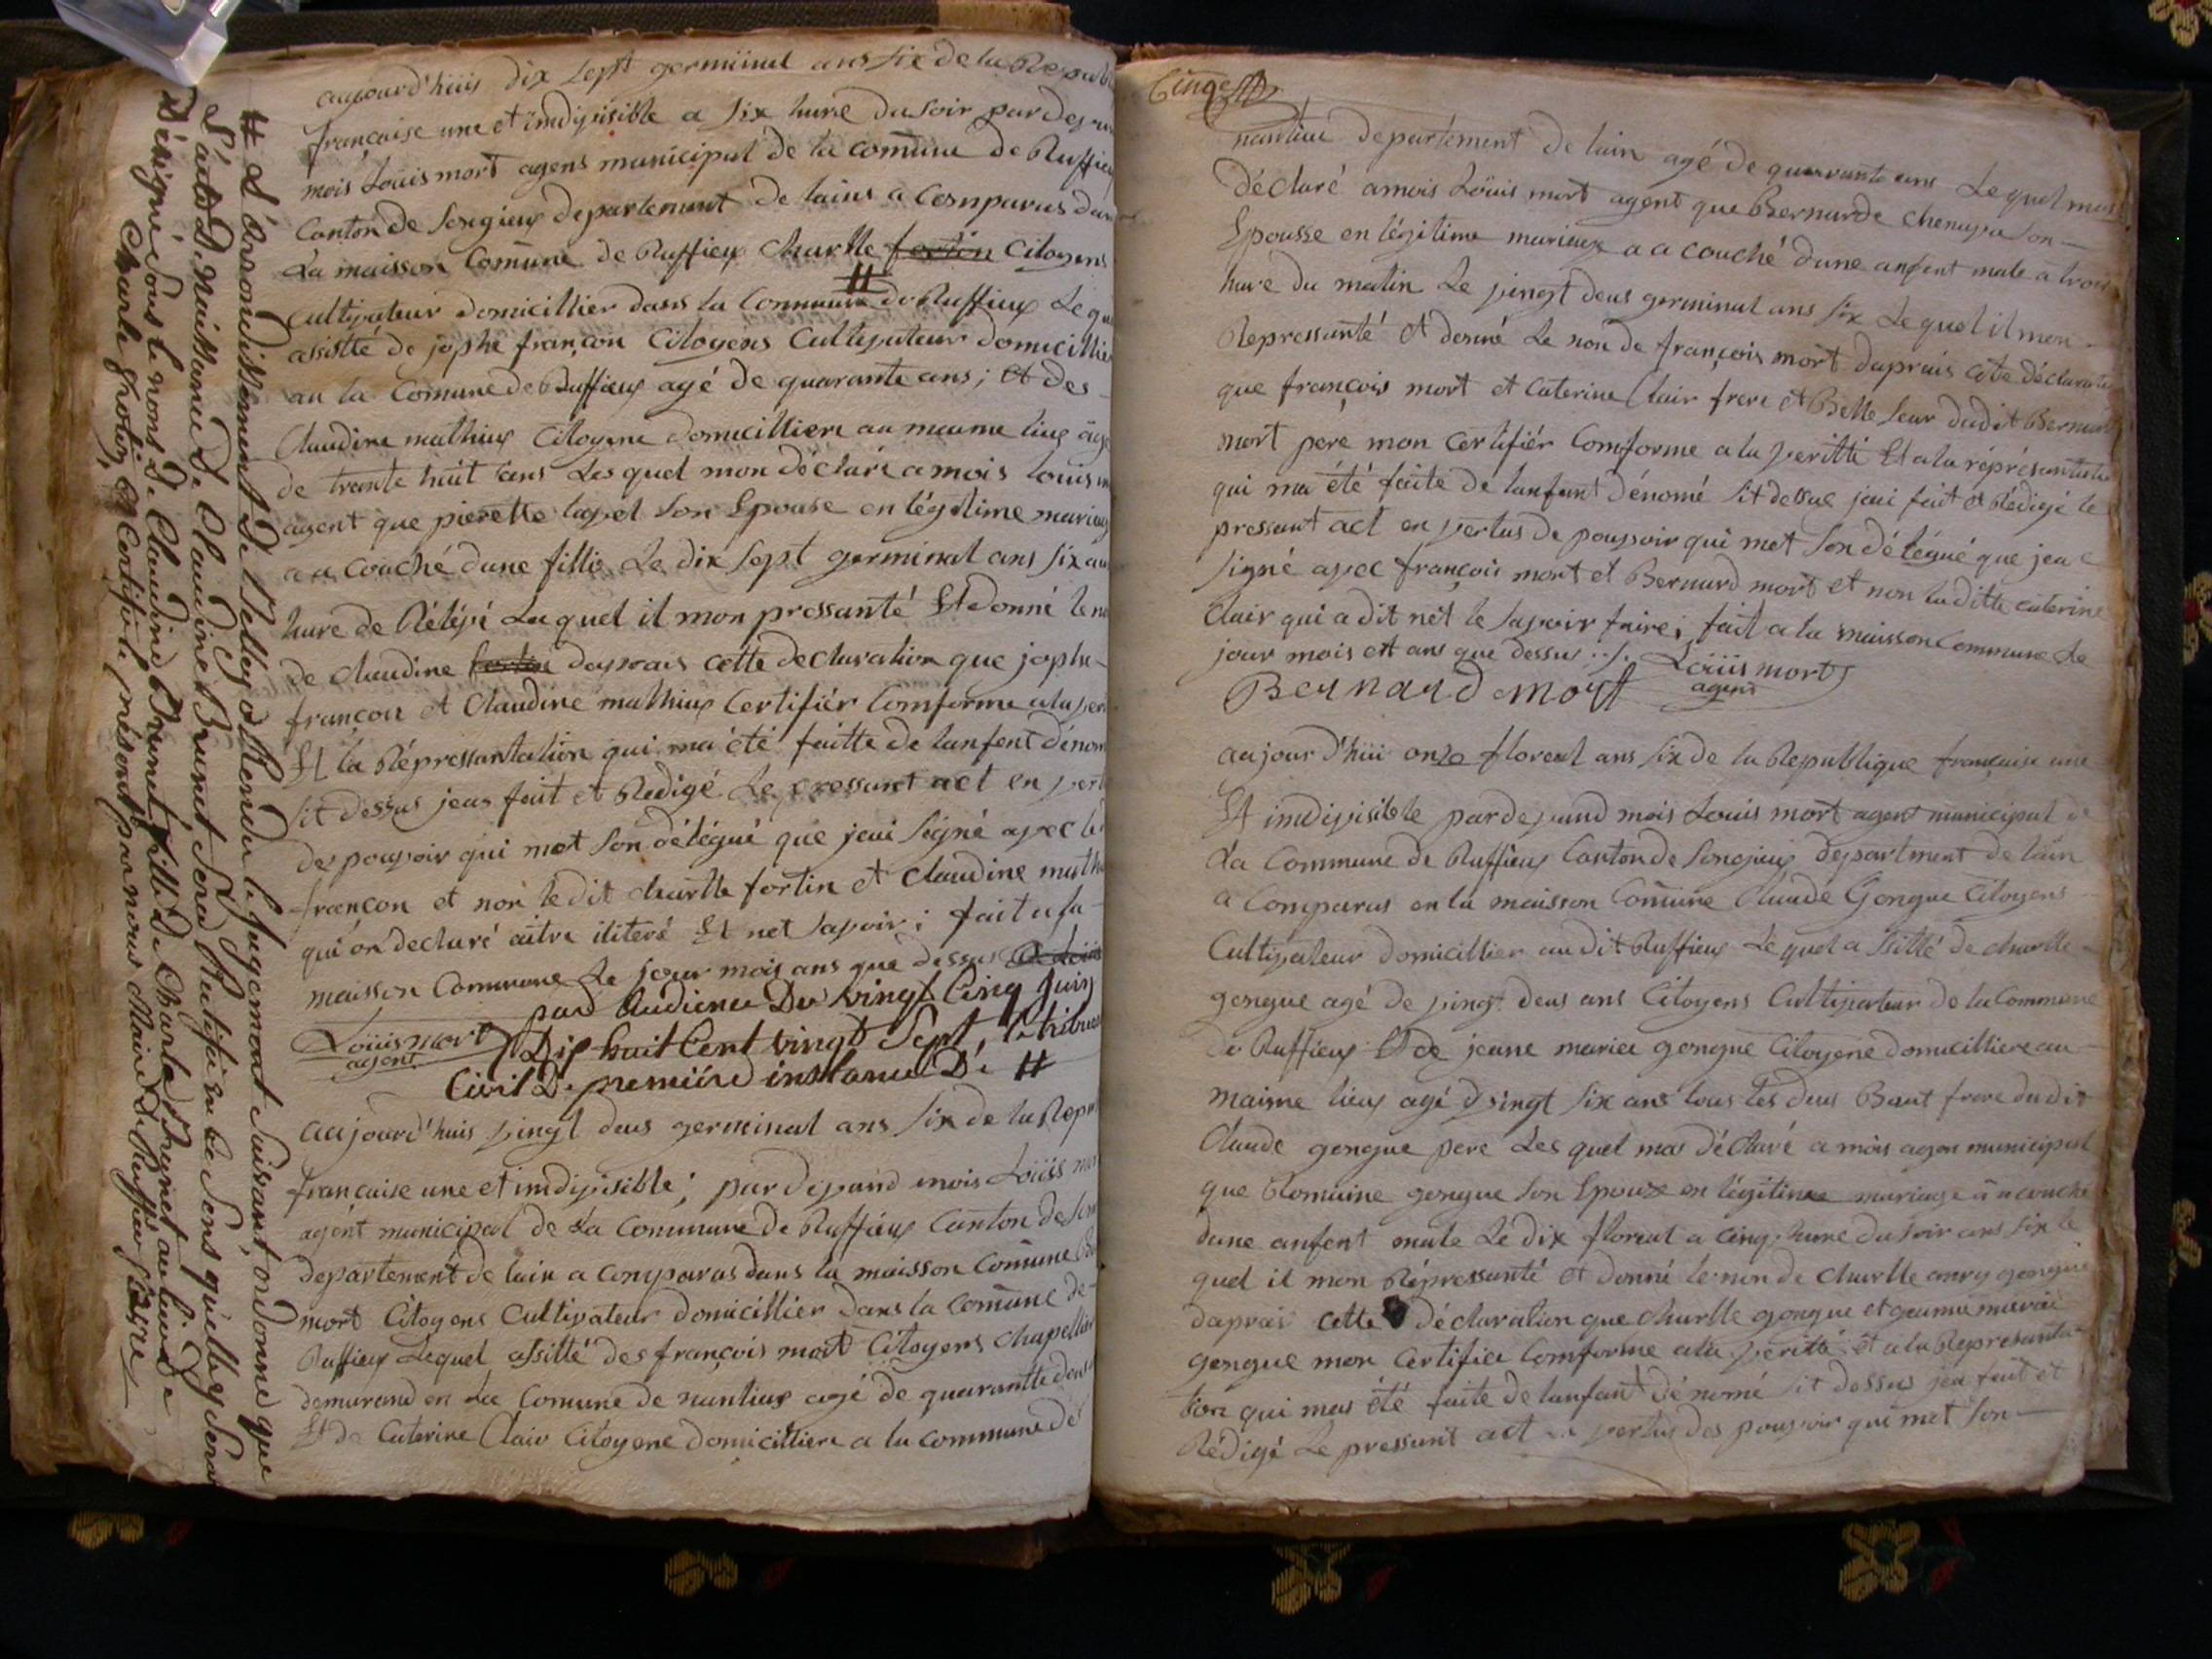 aujourd'hüis dix sept germinal ans six de la Repub
francaise une et indivisible a six hure du soir par devan
mois Loüis mort agens municipal de la comune de Ruffieu
Canton de Songieu departement de lains a Comparus dan
La maisson Comune de Ruffieu Charlle fortin Citoyens
Cultivateur domicillier dans la Commune de Ruffieux Le qu
assisté de jophe françon Citoyens Cultivateur domicillier
an la Comune de Ruffieux agé de quarante ans ; et des
Claudine mathieux Citoyene domicilliere au meume lieu age
de trante huit ans Les quel mon déclaré a mois Louis m
agent que pierette lapet son Epouse en légitime mariag
a a couché dune fillie Le dix sept germinal ans six au
hure de Rélévé La quel il mon pressanté Et donné le no
de claudine fortin daprais cette declaration que jophe
françon et Claudine mathieux Certifiér Comforme a la ver
Et la Répressantation qui ma été faitte de lanfent dénom
sit dessus jeai fait et Redigé Le pressant act en vert
de pouvoir qui met son délégué que jeai signé avec le
françon et non le dit charlle fortin et Claudine math
qui on declaré aitre iliteré Et net savoir ; fait a la
maisson Commune Le jour mois ans que dessus
par Audience Du vingt Cinq Juin
Loüis mort Dix huit Cent vingt Sept, le tribunal
agent
Civil De premiére instance De #
aujourd'huis vingt deus germinal ans six de la Repu
francaise une et indivisible ; par devand mois Loüis mor
agént municipal de La Commune de Ruffieux Canton de son
departement de lain a comparus dans la maisson Comune Be
mort Citoyens Cultivateur domicillier dans la Comune de
Ruffieux Lequel assitté des françois mort Citoyens chapellier
demurand en La Comune de nantieux agé de quarantte deus
Et de Caterine Clair Citoyene domicilliere a la commune de
# L'arrondissement de Belley a Rendu le Jugement Suivant, ordonne que
L'acte De Naissance de Claudine Brunet sera Rectifié en ce sens qu'elle y sera
Désigné sous le nom de Claudine Brunet fille de Charle Brunet au lieu de
Charle fortin, et Certifié le présent par nous Maire de Ruffieu
Cinq
nantieu departement de lain agé de quarrante ans Le quel mas
déclaré amois Loüis mort agent que Bernarde chenava son
Epousse en légitime mariaux a a couché dune anfent male a trois
hure du matin Le vingt deus germinal ans six Le quel il mon
Repressanté et donné Le non de françois mort daprais cete déclaration
que françois mort et Caterine Clair frere et Belle seur dudit Bernard
mort pere mon certifiér Comforme a la veritté Et a la réprésantation
qui ma été faite de lanfant dénomé sit dessue jeai fait et Rédigé le
pressant act en vertus de pouvoir qui met son délégué que jeai
signé avec françois mort et Bernard mort et non la ditte caterine
Clair qui a dit net le savoir faire ; fait a la maisson Commune Le
jour mois et ans que dessus ./. Loüis mort
Bernard mort agent
aujourd'hüi onze floreal ans six de la Republique francaise une
Et indivisible par devand mois Louis mort agent municipal de
La Commune de Ruffieux Canton de Songieu department de lain
a Comparus en la maisson Comune Claude Gongue Citoyens
Cultivateur domicillier au dit Ruffieux Le quel assitté de charlle
gongue agé de vingt deus ans Citoyens Cultivateur de la Commune
de Ruffieux Et de jeane mariee gongue Citoyene domicilliere au
maime lieux agé d vingt six ans tous les deus Baut frere du dit
Claude gongue pere Les quel mas déclaré a mois agen municipal
que Romaine gongue son Epouse en légitime mariage a a couché
dune anfent male Le dix floreal a Cinq hure du soir ans six le
quel il mon Répressanté et donné le non de charlle anry gongue
daprais cette déclaration que charlle gongue et geanne maraie
gongue mon Certifiée Comforme a la veritté et a la Represanta-
tion qui mas été faite de lanfant dé nomé sit dessus jeai fait et
Rédigé Le pressant act en vertus des pouvoir qui met son